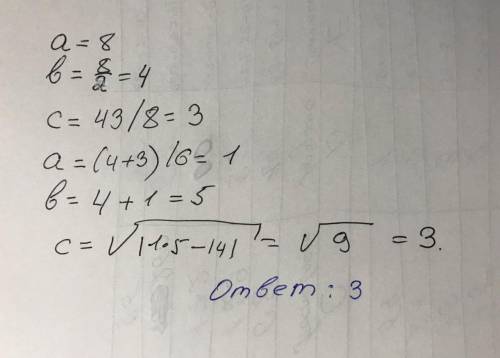 a = 8
b = 8/2 = 4
c = 43/8 = 3
a = (4+3)/6 = 1
b = 4 + 1 = 5
c = √|1·5-14| = √9 = 3.
Ответ: 3